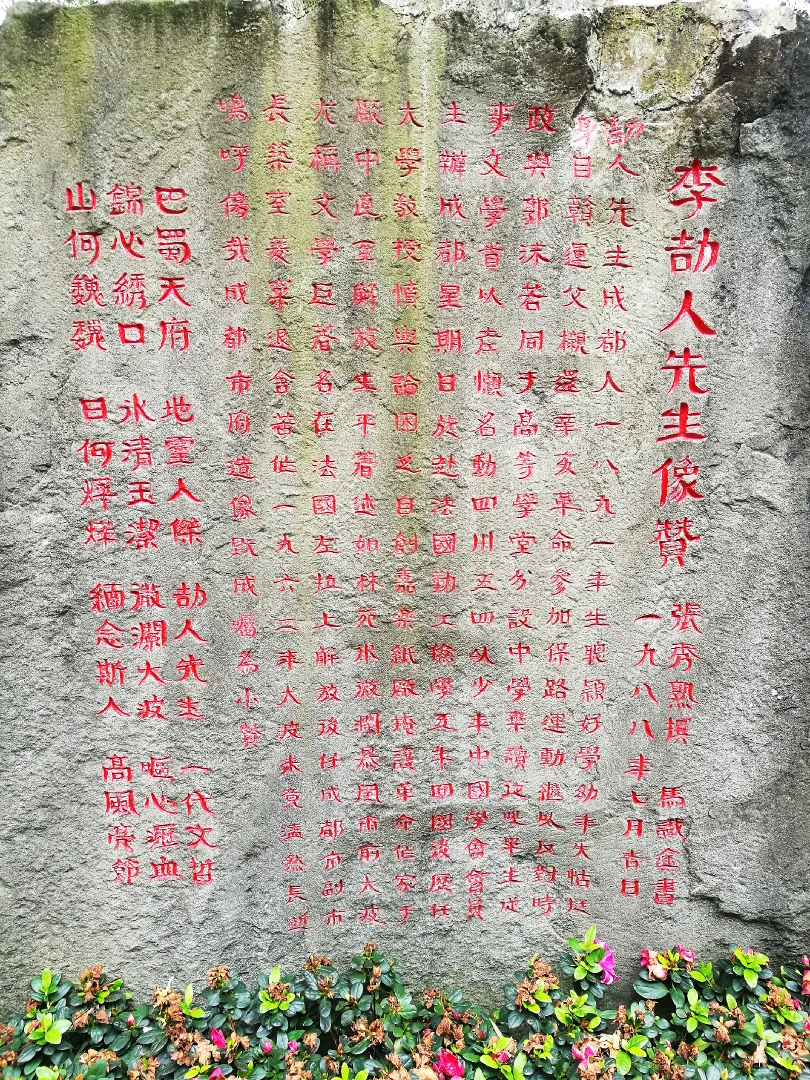 李劼人先生像贊
張秀熟撰 馬識途書
一九八八年七月吉日
劼人先生成都人一八九一年生聰穎好學幼年失怙廷
身自贛運父櫬還辛亥革命參加保路運動繼以反對時
政與郭沫若同于高等學堂分設中學畢生從
事文學首以盦懶名動四川五四以少年中國學會會員
主辦成都星期日旋赴法國勤工儉學五年回國後歷任
大學教授慎輿論因之自創嘉樂紙廠掩護革命作家于
廠中直至解放生平著述如林死水微瀾暴風雨前大波
尤稱文學巨著名在法國左拉上解放後任成都市副市
長築室菱窠退食著作一九六二年大波未竟溘然長逝
嗚呼傷哉成都市府造像既成囑為小贊
巴蜀天府 地靈人傑 劼人先生 一代文哲
錦心綉口 冰清玉潔 微瀾大波 嘔心瀝血
山何巍巍 日何燁燁 緬念斯人 高風亮節